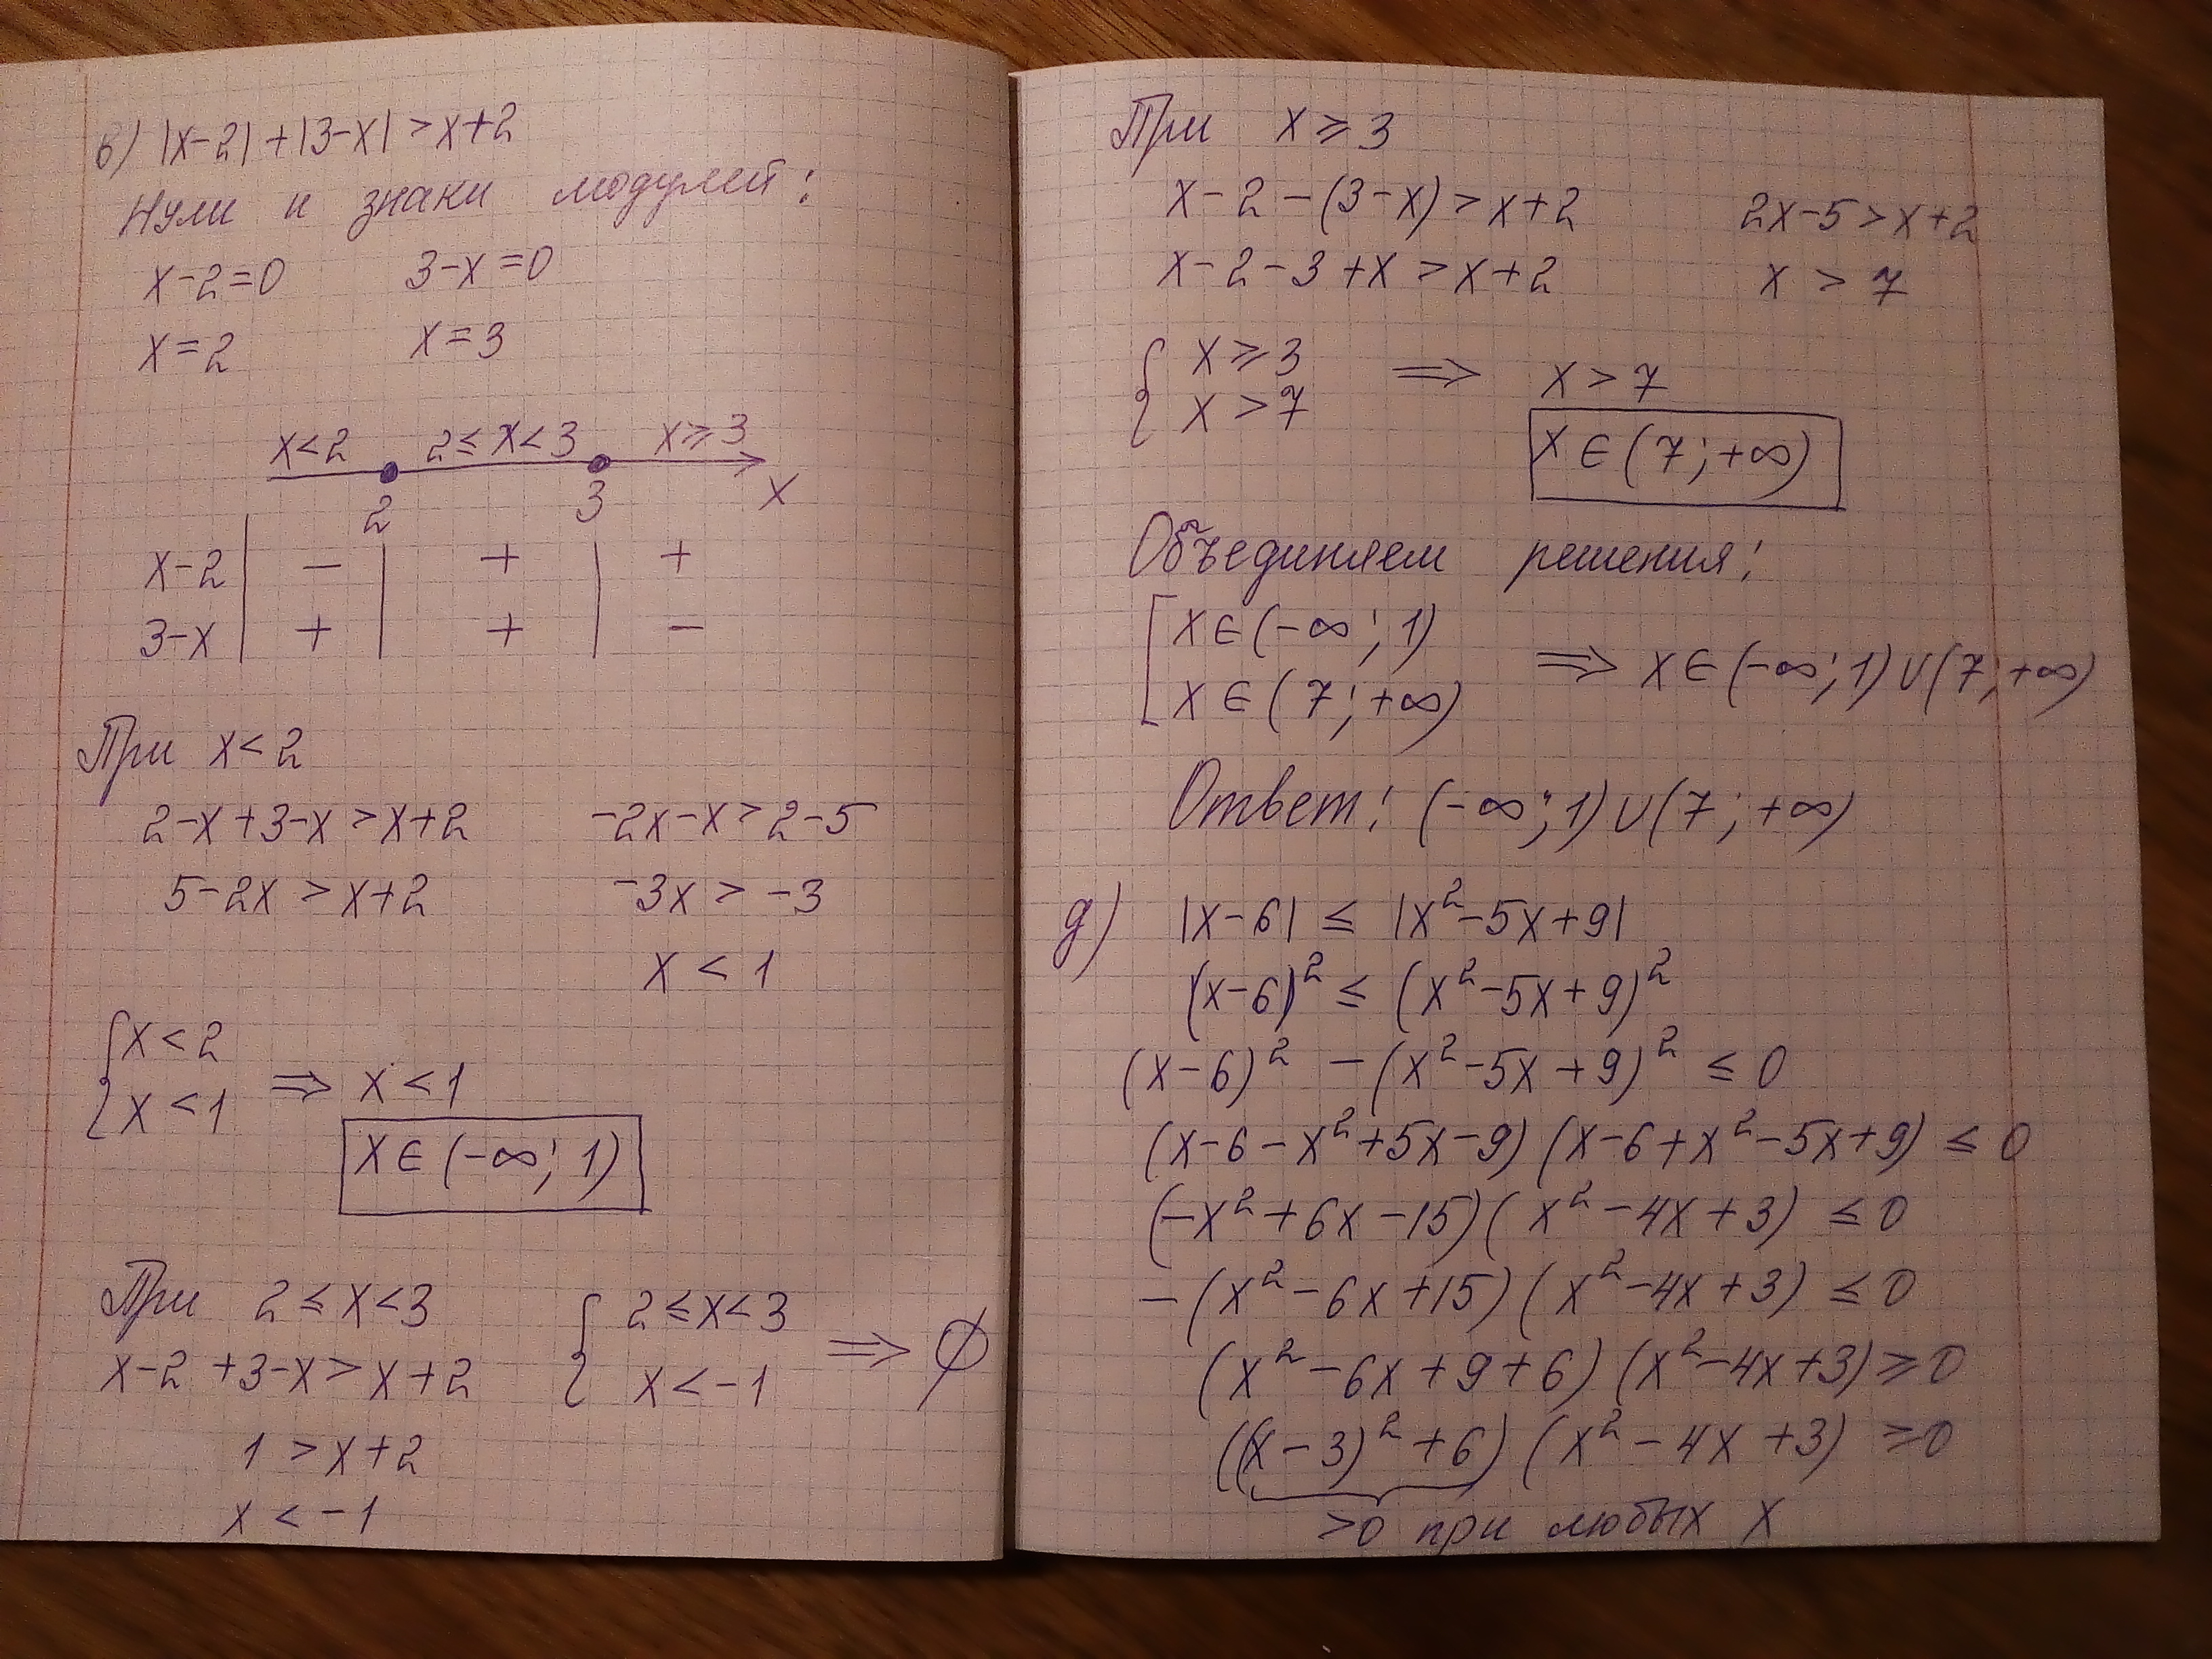 в) |x-2| + |3-x| > x+2
Нули и знаки модулей:
x-2=0 3-x=0
x=2 x=3
x<2 2≤x<3 x≥3
2 3 x
x-2 | - | + | +
3-x | + | + | -
При x<2
2-x+3-x>x+2 -2x-x>2-5
5-2x>x+2 -3x>-3
x<1
{ x<2
{ x<1 ⇒ x<1
x∈(-∞; 1)
При 2≤x<3 { 2≤x<3
x-2+3-x>x+2 { x<-1 ⇒ ∅
1>x+2
x<-1
При x≥3
x-2-(3-x)>x+2 2x-5>x+2
x-2-3+x>x+2 x>7
{ x≥3
{ x>7 ⇒ x>7
x∈(7; +∞)
Объединяем решения:
[ x∈(-∞; 1)
[ x∈(7; +∞) ⇒ x∈(-∞; 1)∪(7; +∞)
Ответ: (-∞; 1)∪(7; +∞)
д) |x-6| ≤ |x²-5x+9|
(x-6)² ≤ (x²-5x+9)²
(x-6)² - (x²-5x+9)² ≤ 0
(x-6-x²+5x-9)(x-6+x²-5x+9) ≤ 0
(-x²+6x-15)(x²-4x+3) ≤ 0
-(x²-6x+15)(x²-4x+3) ≤ 0
(x²-6x+9+6)(x²-4x+3) ≥ 0
((x-3)²+6)(x²-4x+3) ≥ 0
>0 при любых x